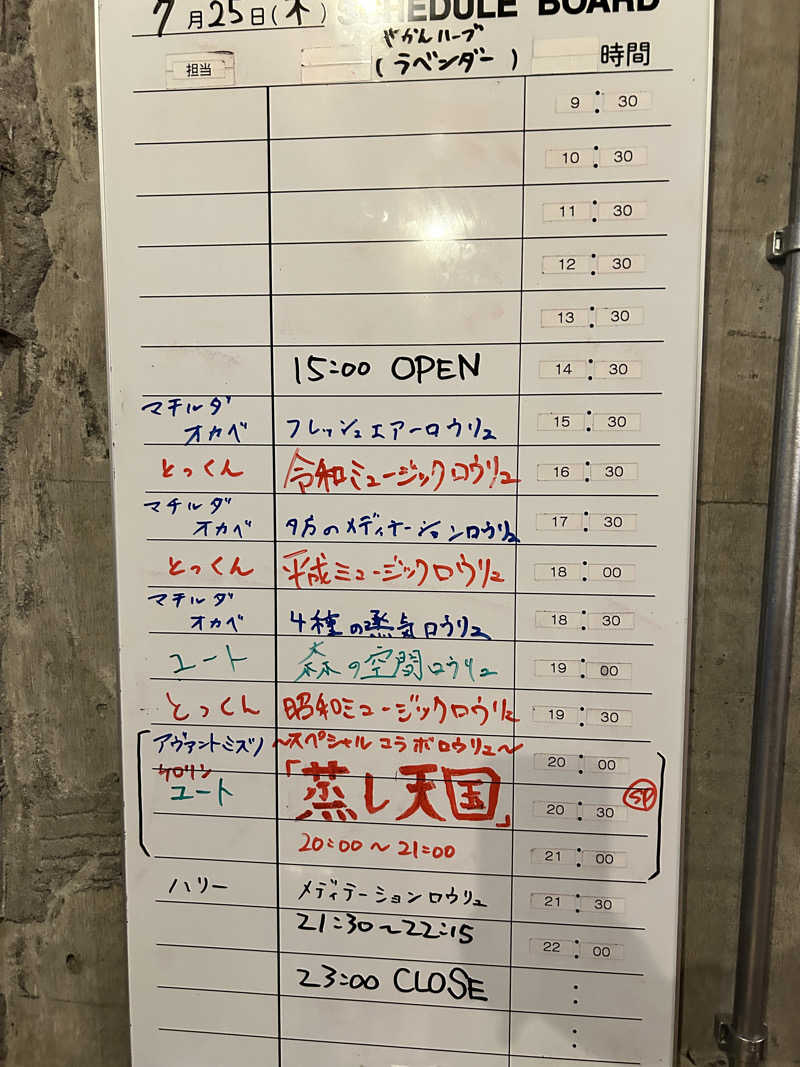 7月25日(木) SCHEDULE BOARD
やかんハーブ
担当 (ラベンダー) 時間
9 : 30
10 : 30
11 : 30
12 : 30
13 : 30
15:00 OPEN 14 : 30
マチルダ
オカベ フレッシュエアーロウリュ 15 : 30
とっくん 令和ミュージックロウリュ 16 : 30
マチルダ
オカベ 夕方のメディテーションロウリュ 17 : 30
とっくん 平成ミュージックロウリュ 18 : 00
マチルダ
オカベ 4種の蒸気ロウリュ 18 : 30
ユート 森の空間ロウリュ 19 : 00
とっくん 昭和ミュージックロウリュ 19 : 30
アヴァント・ミズノ 〜スペシャルコラボロウリュ〜 20 : 00
ケロリン
ユート 「蒸し天国」 20 : 30 SP
20:00〜21:00 21 : 00
ハリー メディテーションロウリュ 21 : 30
21:30〜22:15 22 : 00
23:00 CLOSE :
: